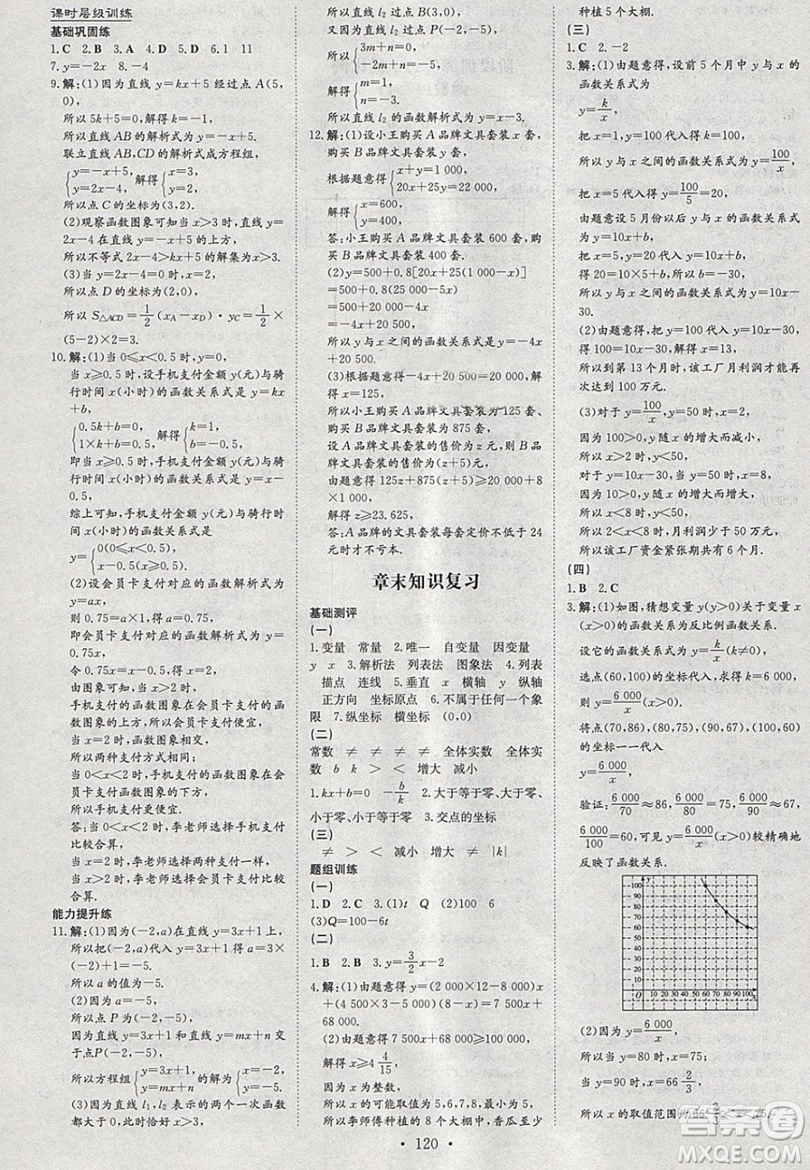 课时层级训练
基础巩固练
1.C 2.B 3.A 4.A 5.D 6.1 11
7.y=-2x 8.-4
9.解:(1)因为直线 y=kx+5 经过点 A(5,
0),
所以 5k+5=0,解得 k=-1.
所以直线 AB 的解析式为 y=-x+5.
联立直线 AB,CD 的解析式成方程组,
{y=-x+5, 解得 {x=3,
y=2x-4, y=2.
所以点 C 的坐标为(3,2).
(2)观察函数图象可知当 x>3 时,直线 y=
2x-4 在直线 y=kx+5 的上方,
所以不等式 2x-4>kx+5 的解集为 x>3.
(3)当 y=2x-4=0 时,x=2,
所以点 D 的坐标为(2,0),
所以 S△ACD=1/2(xA-xD)·yC=1/2×
(5-2)×2=3.
10.解:(1)当 0≤x<0.5 时,y=0;
当 x≥0.5 时,设手机支付金额 y(元)与骑
行时间 x(小时)的函数关系式是 y=kx
+b,
{0.5k+b=0, 解得 {k=1,
1×k+b=0.5, b=-0.5,
即当 x≥0.5 时,手机支付金额 y(元)与骑
行时间 x(小时)的函数关系式是 y=x-
0.5,
综上可知,手机支付金额 y(元)与骑行时间
x(小时)的函数关系式是
y={0(0≤x<0.5),
x-0.5(x≥0.5).
(2)设会员卡支付对应的函数解析式为
y=ax,
则 0.75=a×1,得 a=0.75,
即会员卡支付对应的函数解析式为 y=
0.75x.
令 0.75x=x-0.5,得 x=2,
由图象可知,当 x>2 时,
手机支付的函数图象在会员卡支付的函数
图象的上方,所以会员卡支付便宜,
当 x=2 时,
所以两种支付方式相同;
当 0<x<2 时,手机支付的函数图象在会
员卡支付的函数图象的下方,
所以手机支付更便宜.
答:当 0<x<2 时,李老师选择手机支付
比较合算;
当 x=2 时,李老师选择两种支付一样;
当 x>2 时,李老师选择会员卡支付比较
合算.
能力提升练
11.解:(1)因为(-2,a)在直线 y=3x+1 上,
所以把(-2,a)代入 y=3x+1 得 a=3
×(-2)+1=-5.
所以 a 的值为-5.
(2)由(1)得点 P(-2,-5).
因为直线 y=3x+1 和直线 y=mx+n 交
于点 P(-2,-5),
所以方程组 {y=3x+1, 的解为 {x=-2,
y=mx+n y=-5.
(3)因为直线 l1,l2 表示的两个一次函数
都大于 0,此时恰好 x>3,
所以直线 l2 过点 B(3,0),
又因为直线 l2 经过点 P(-2,-5),
所以 {3m+n=0,
-2m+n=-5,
解得 {m=1,
n=-3.
所以直线 l2 的函数解析式为 y=x-3.
12.解:(1)设小王购买 A 品牌文具套装 x 套,
购买 B 品牌文具套装 y 套,
根据题意得 {x+y=1 000,
20x+25y=22 000,
解得 {x=600,
y=400,
答:小王购买 A 品牌文具套装 600 套,购
买 B 品牌文具套装 400 套.
(2)y=500+0.8[20x+25(1 000-x)]
=500+0.8(25 000-5x)
=500+20 000-4x
=-4x+20 500,
所以 y 与 x 之间的函数关系式是 y=-4x+
20 500.
(3)根据题意得-4x+20 500=20 000,解
得 x=125,
所以小王购买 A 品牌文具套装为 125 套、
购买 B 品牌文具套装为 875 套,
设 A 品牌文具套装的售价为 z 元,则 B
品牌文具套装的售价为(z+5)元,
由题意得 125z+875(z+5)≥20 000+8
×1 000,
解得 z≥23.625,
答:A 品牌的文具套装每套定价不低于 24
元时才不亏本.
章末知识复习
基础测评
(一)
1.变量 常量 2.唯一 自变量 因变量
y x 3.解析法 列表法 图象法 4.列表
描点 连线 5.垂直 x 横轴 y 纵轴
正方向 坐标原点 6.不属于任何一个象
限 7.纵坐标 横坐标 (0,0)
(二)
常数 ≠ ≠ ≠ 全体实数 全体实
数 b k > < 增大 减小
1.kx+b=0 -b/k 2.大于等于零、大于零、
小于零、小于等于零 3.交点的坐标
(三)
≠ > < 减小 增大 ≠ |k|
题组训练
(一)
1.D 2.C 3.(1)t Q (2)100 6
(3)Q=100-6t
(二)
1.B 2.B 3.y=3/2x-2
4.解:(1)由题意得 y=(2 000×12-8 000)x
+(4 500×3-5 000)(8-x)=7 500x+
68 000.
(2)由题意得 7 500x+68 000≥100 000,
解得 x≥4 4/15,
因为 x 为整数,
所以 x 的可能取值为 5,6,7,8,最小值为 5,
所以李师傅种植 8 个大棚中,香瓜至少
种植 5 个大棚.
(三)
1.C 2.-2
3.解:(1)由题意得,设前 5 个月中 y 与 x 的
函数关系式为
y=k/x,
把 x=1,y=100 代入得 k=100,
所以 y 与 x 之间的函数关系式为 y=100/x,
把 x=5 代入得 y=100/5=20,
由题意设 5 月份以后 y 与 x 的函数关系式
为 y=10x+b,
把 x=5,y=20 代入得
得 20=10×5+b,所以 b=-30,
所以 y 与 x 之间的函数关系式为 y=10x-
30.
(2)由题意得,把 y=100 代入 y=10x-30,
得 100=10x-30,解得 x=13,
所以到第 13 个月时,该工厂月利润才能再
次达到 100 万元.
(3)对于 y=100/x,当 y=50 时,x=2,
因为 100>0,y 随 x 的增大而减小,
所以 x>2 时,y<50,
对于 y=10x-30,当 y=50 时,x=8,
因为 10>0,y 随 x 的增大而增大,
所以 x<8 时,y<50,
所以 2<x<8 时,月利润少于 50 万元,
所以该工厂资金紧张期共有 6 个月.
(四)
1.B 2.C
3.解:(1)如图,猜想变量 y(y>0)关于变量 x
(x>0)的函数关系为反比例函数关系,
设它的函数关系式为 y=k/x(x>0),
选点(100,60)的坐标代入得
y=6 000/x(x>0).
将点(70,86),(80,75),(90,67),(100,60)
的坐标一一代入
y=6 000/x,
验证:6 000/70≈86,6 000/80=75,6 000/90≈67,
6 000/100=60,可见 y=6 000/x(x>0)较精确地
反映了函数关系.
y
100
90
80
70
60
50
40
30
20
10
O 10 20 30 40 50 60 70 80 90 100 x
(2)因为 y=6 000/x,
所以当 y=80 时,x=75;
当 y=90 时,x=66 2/3,
所以 x 的取值范围
120
答案圈
MXQE.COM